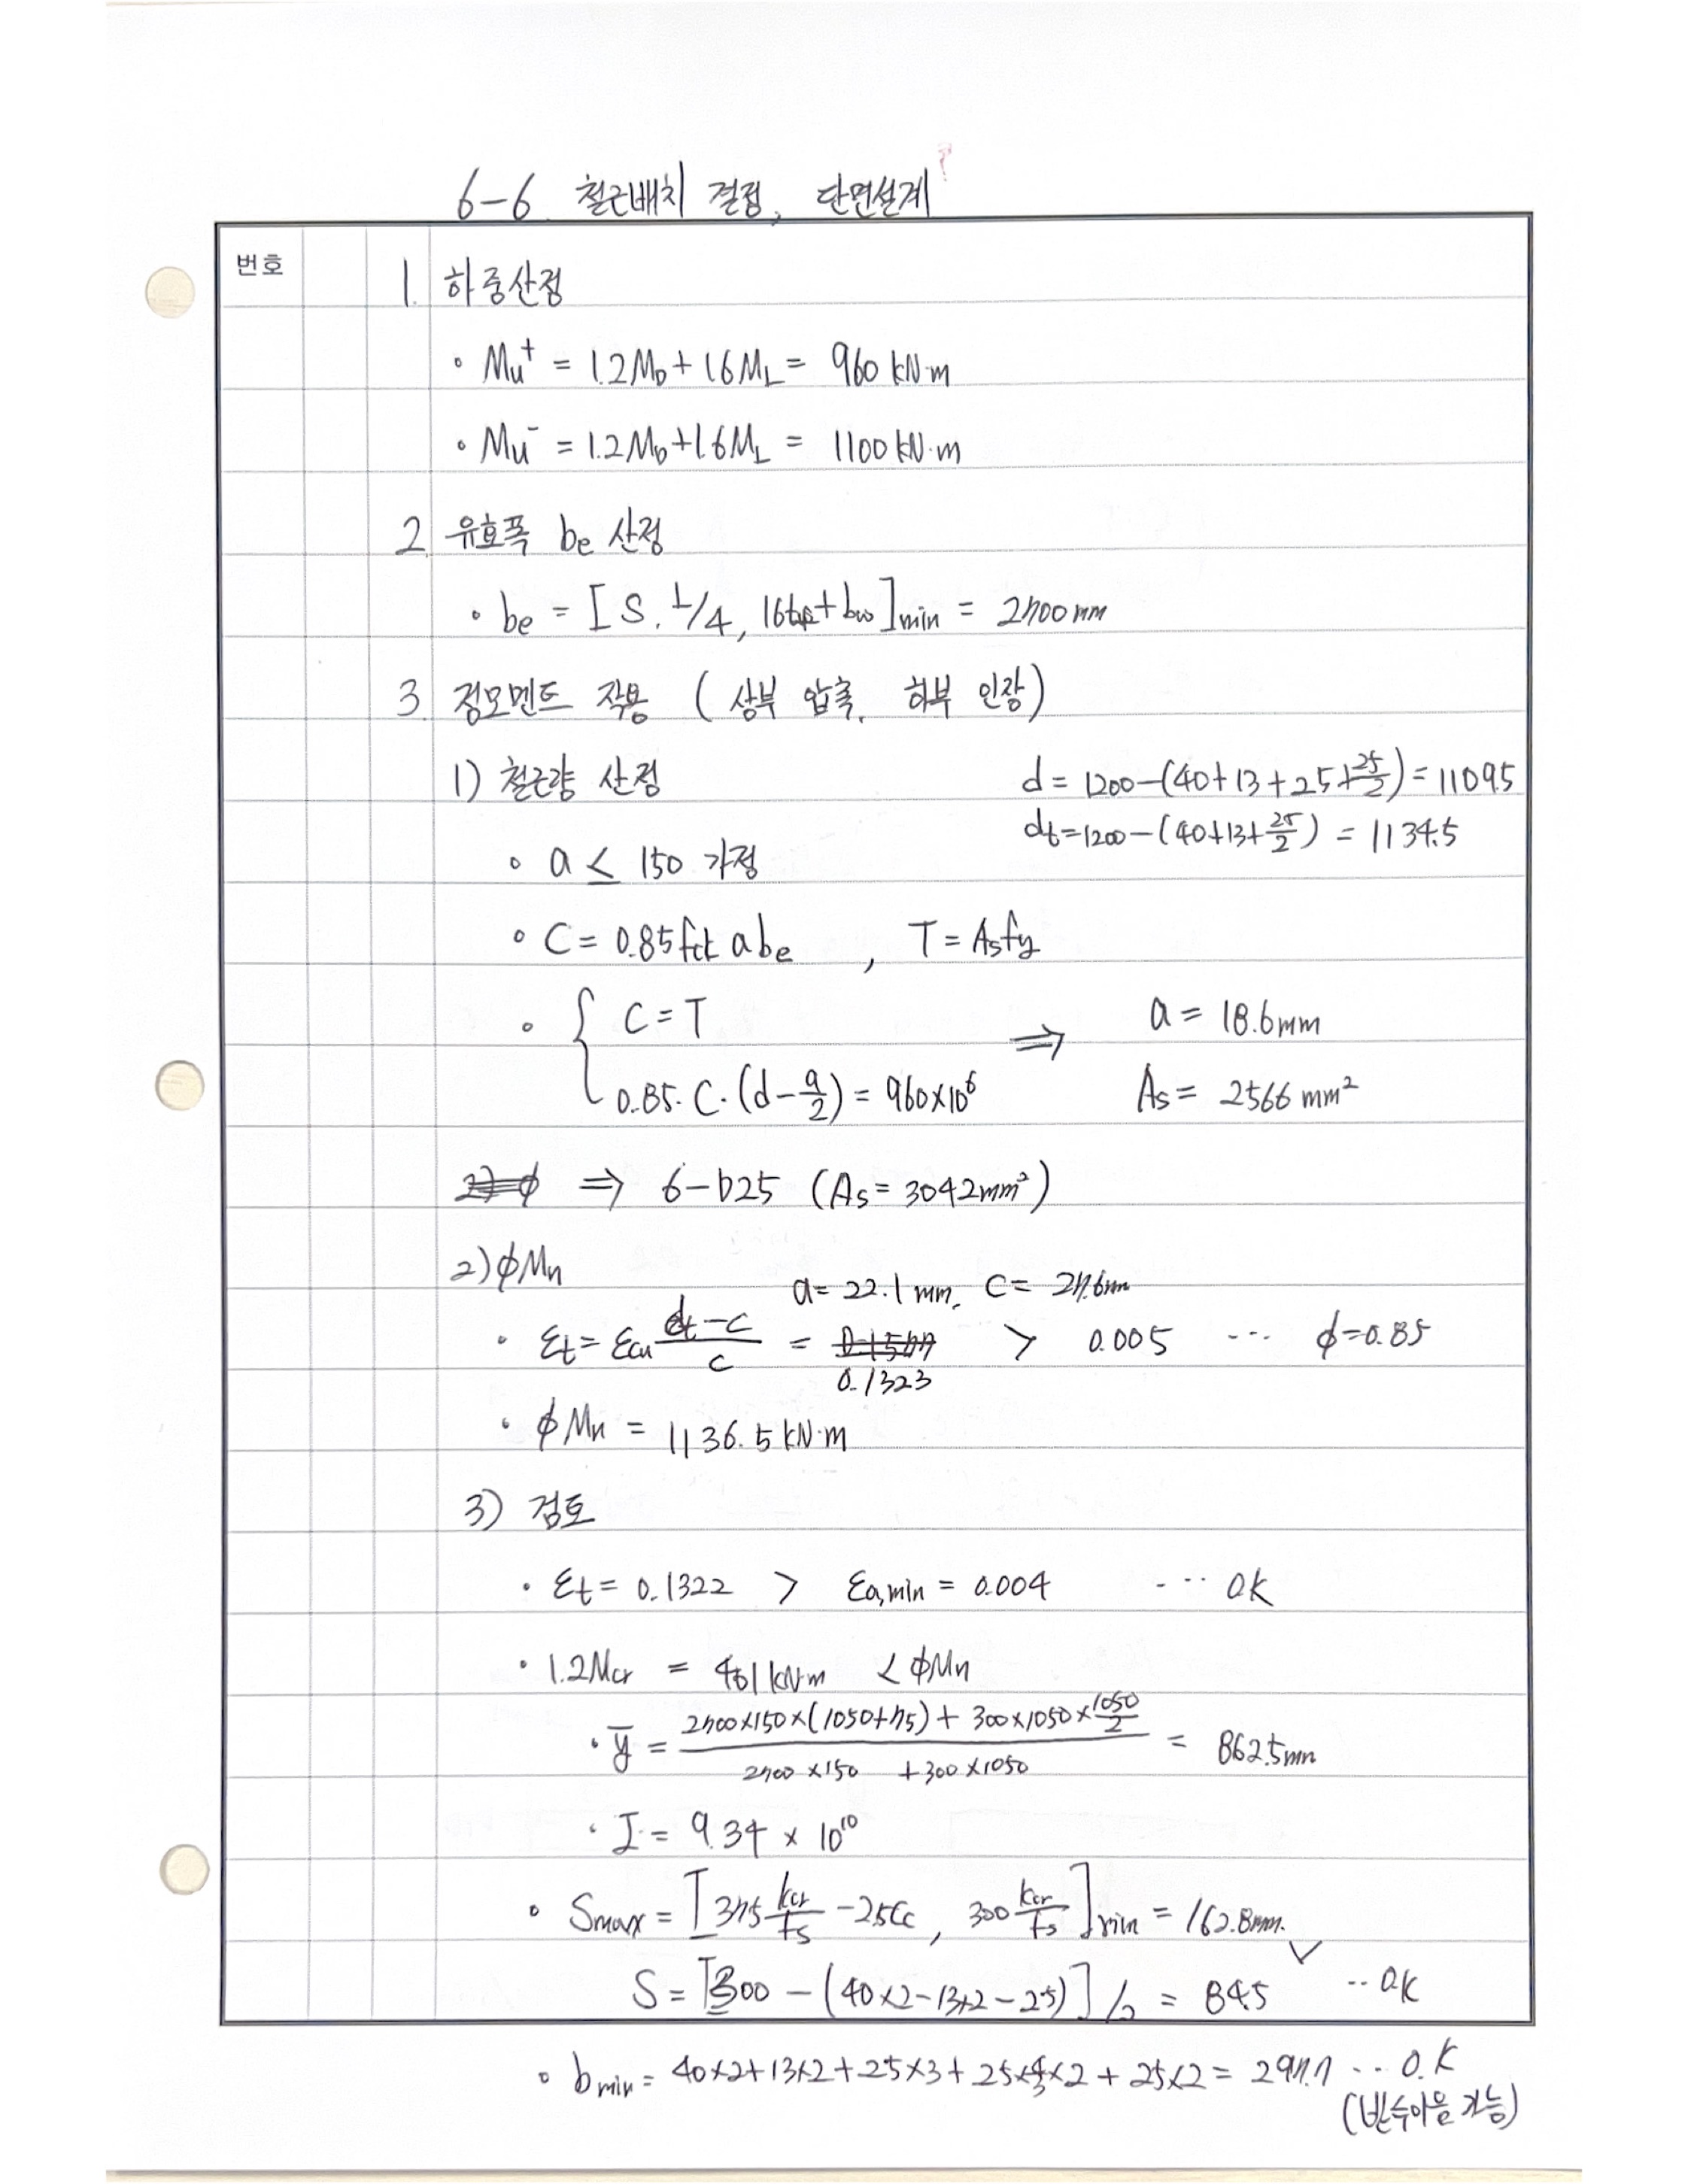 6-6. 철근배치 결정, 단면설계
번호
1. 하중산정
• Mu⁺ = 1.2M_D + 1.6M_L = 960 kN·m
• Mu⁻ = 1.2M_D + 1.6M_L = 1100 kN·m
2. 유효폭 be 산정
• be = [S, L/4, 16t_f + bw]min = 2700mm
3. 정모멘트 작용 (상부 압축, 하부 인장)
1) 철근량 산정
d = 1200-(40+13+25+25/2) = 1109.5
dt = 1200-(40+13+25/2) = 1134.5
• a ≤ 150 가정
• C = 0.85fck a be , T = Asfy
• { C = T ⇒ a = 18.6mm
0.85·C·(d-a/2) = 960×10⁶ As = 2566 mm²
⇒ 6-D25 (As = 3042mm²)
2) ϕMn
a = 22.1mm, C = 27.6mm
• εt = εcu (dt-c)/c = 0.1323 > 0.005 ... ϕ=0.85
• ϕMn = 1136.5 kN·m
3) 검토
• εt = 0.1322 > εa,min = 0.004 ... OK
• 1.2Mcr = 461 kN·m < ϕMn
• ȳ = (2700×150×(1050+75) + 300×1050×1050/2) / (2700×150 + 300×1050) = 862.5mm
• I = 9.34 × 10¹⁰
• Smax = [375 kcr/fs - 2.5Cc, 300 kcr/fs]min = 162.8mm.
S = [300 - (40×2-13×2-25)] /2 = 84.5 ... OK
• bmin = 40×2+13×2+25×3+25×4/3×2+25×2 = 297.7 ... O.K
(반수이음 가능)